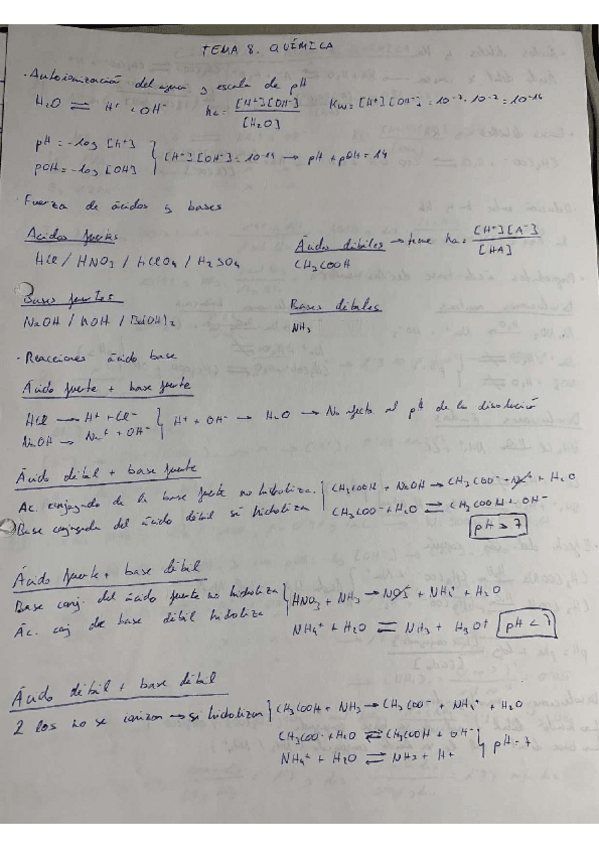 TEMA 8. QUÍMICA
· Autoionización del agua y escala de pH
H₂O ⇌ H⁺ + OH⁻ Ka = [H⁺][OH⁻] / [H₂O] Kw = [H⁺][OH⁻] = 10⁻⁷ · 10⁻⁷ = 10⁻¹⁴
pH = -log [H⁺]
pOH = -log [OH] } [H⁺][OH⁻] = 10⁻¹⁴ → pH + pOH = 14
· Fuerza de ácidos y bases
Ácidos fuertes
HCl / HNO₃ / HClO₄ / H₂SO₄
Ácidos débiles → tiene Ka = [H⁺][A⁻] / [HA]
CH₃COOH
Bases fuertes
NaOH / KOH / Ba(OH)₂
Bases débiles
NH₃
· Reacciones ácido base
Ácido fuerte + base fuerte
HCl → H⁺ + Cl⁻
NaOH → Na⁺ + OH⁻ } H⁺ + OH⁻ → H₂O → No afecta al pH de la disolución
Ácido débil + base fuerte
Ac. conjugado de la base fuerte no hidroliza. { CH₃COOH + NaOH → CH₃COO⁻ + Na⁺ + H₂O
Base conjugada del ácido débil sí hidroliza CH₃COO⁻ + H₂O ⇌ CH₃COOH + OH⁻
pH > 7
Ácido fuerte + base débil
Base conj. del ácido fuerte no hidroliza { HNO₃ + NH₃ → + NH₄⁺ + H₂O
Ác. conj de base débil hidroliza NH₄⁺ + H₂O ⇌ NH₃ + H₃O⁺ pH < 7
Ácido débil + base débil
2 los no se ionizan → si hidrolizan { CH₃COOH + NH₃ → CH₃COO⁻ + NH₄⁺ + H₂O
CH₃COO⁻ + H₂O ⇌ CH₃COOH + OH⁻
NH₄⁺ + H₂O ⇌ NH₃ + H⁺ } pH = 7